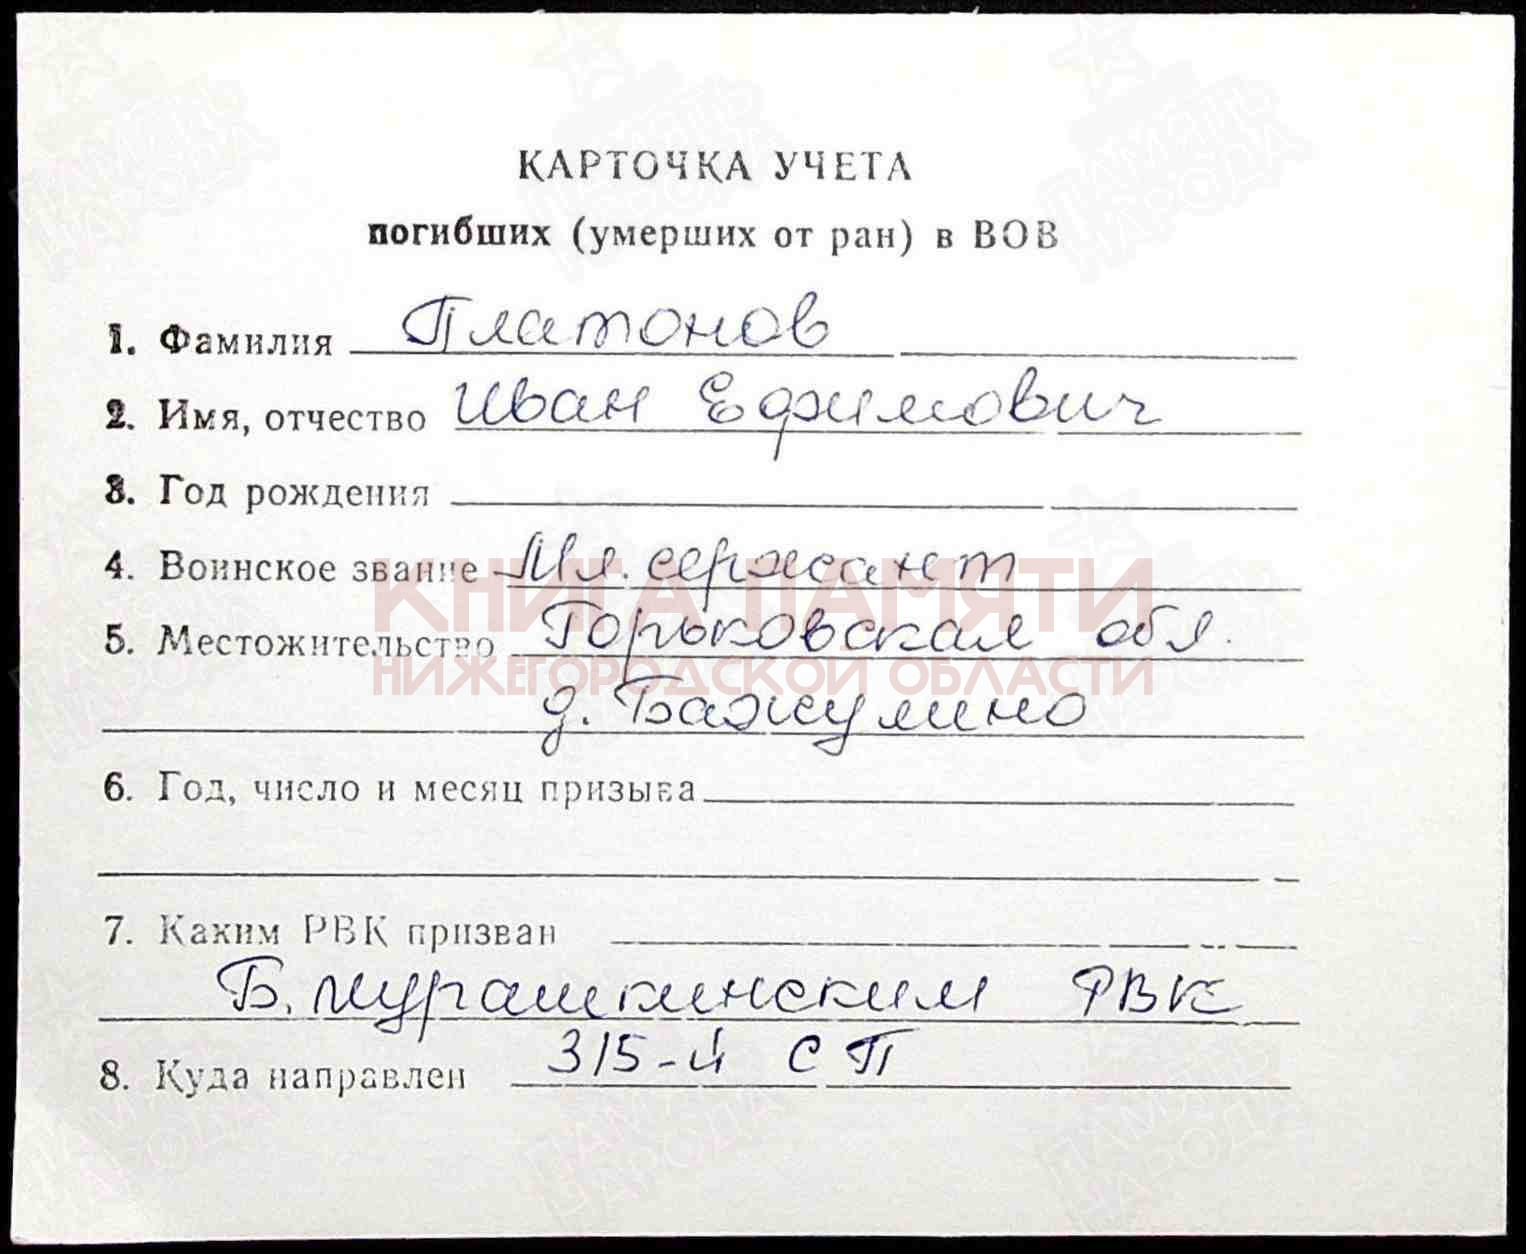 КАРТОЧКА УЧЕТА
погибших (умерших от ран) в ВОВ
1. Фамилия Платонов
2. Имя, отчество Иван Ефимович
3. Год рождения
4. Воинское звание Мл. сержант
КНИГА ПАМЯТИ
5. Местожительство Горьковская обл.
НИЖЕГОРОДСКОЙ ОБЛАСТИ
д. Бажулино
6. Год, число и месяц призыва
7. Каким РВК призван
Б. Мурашкинским РВК
8. Куда направлен 315-й СП
ПАМЯТЬ НАРОДА